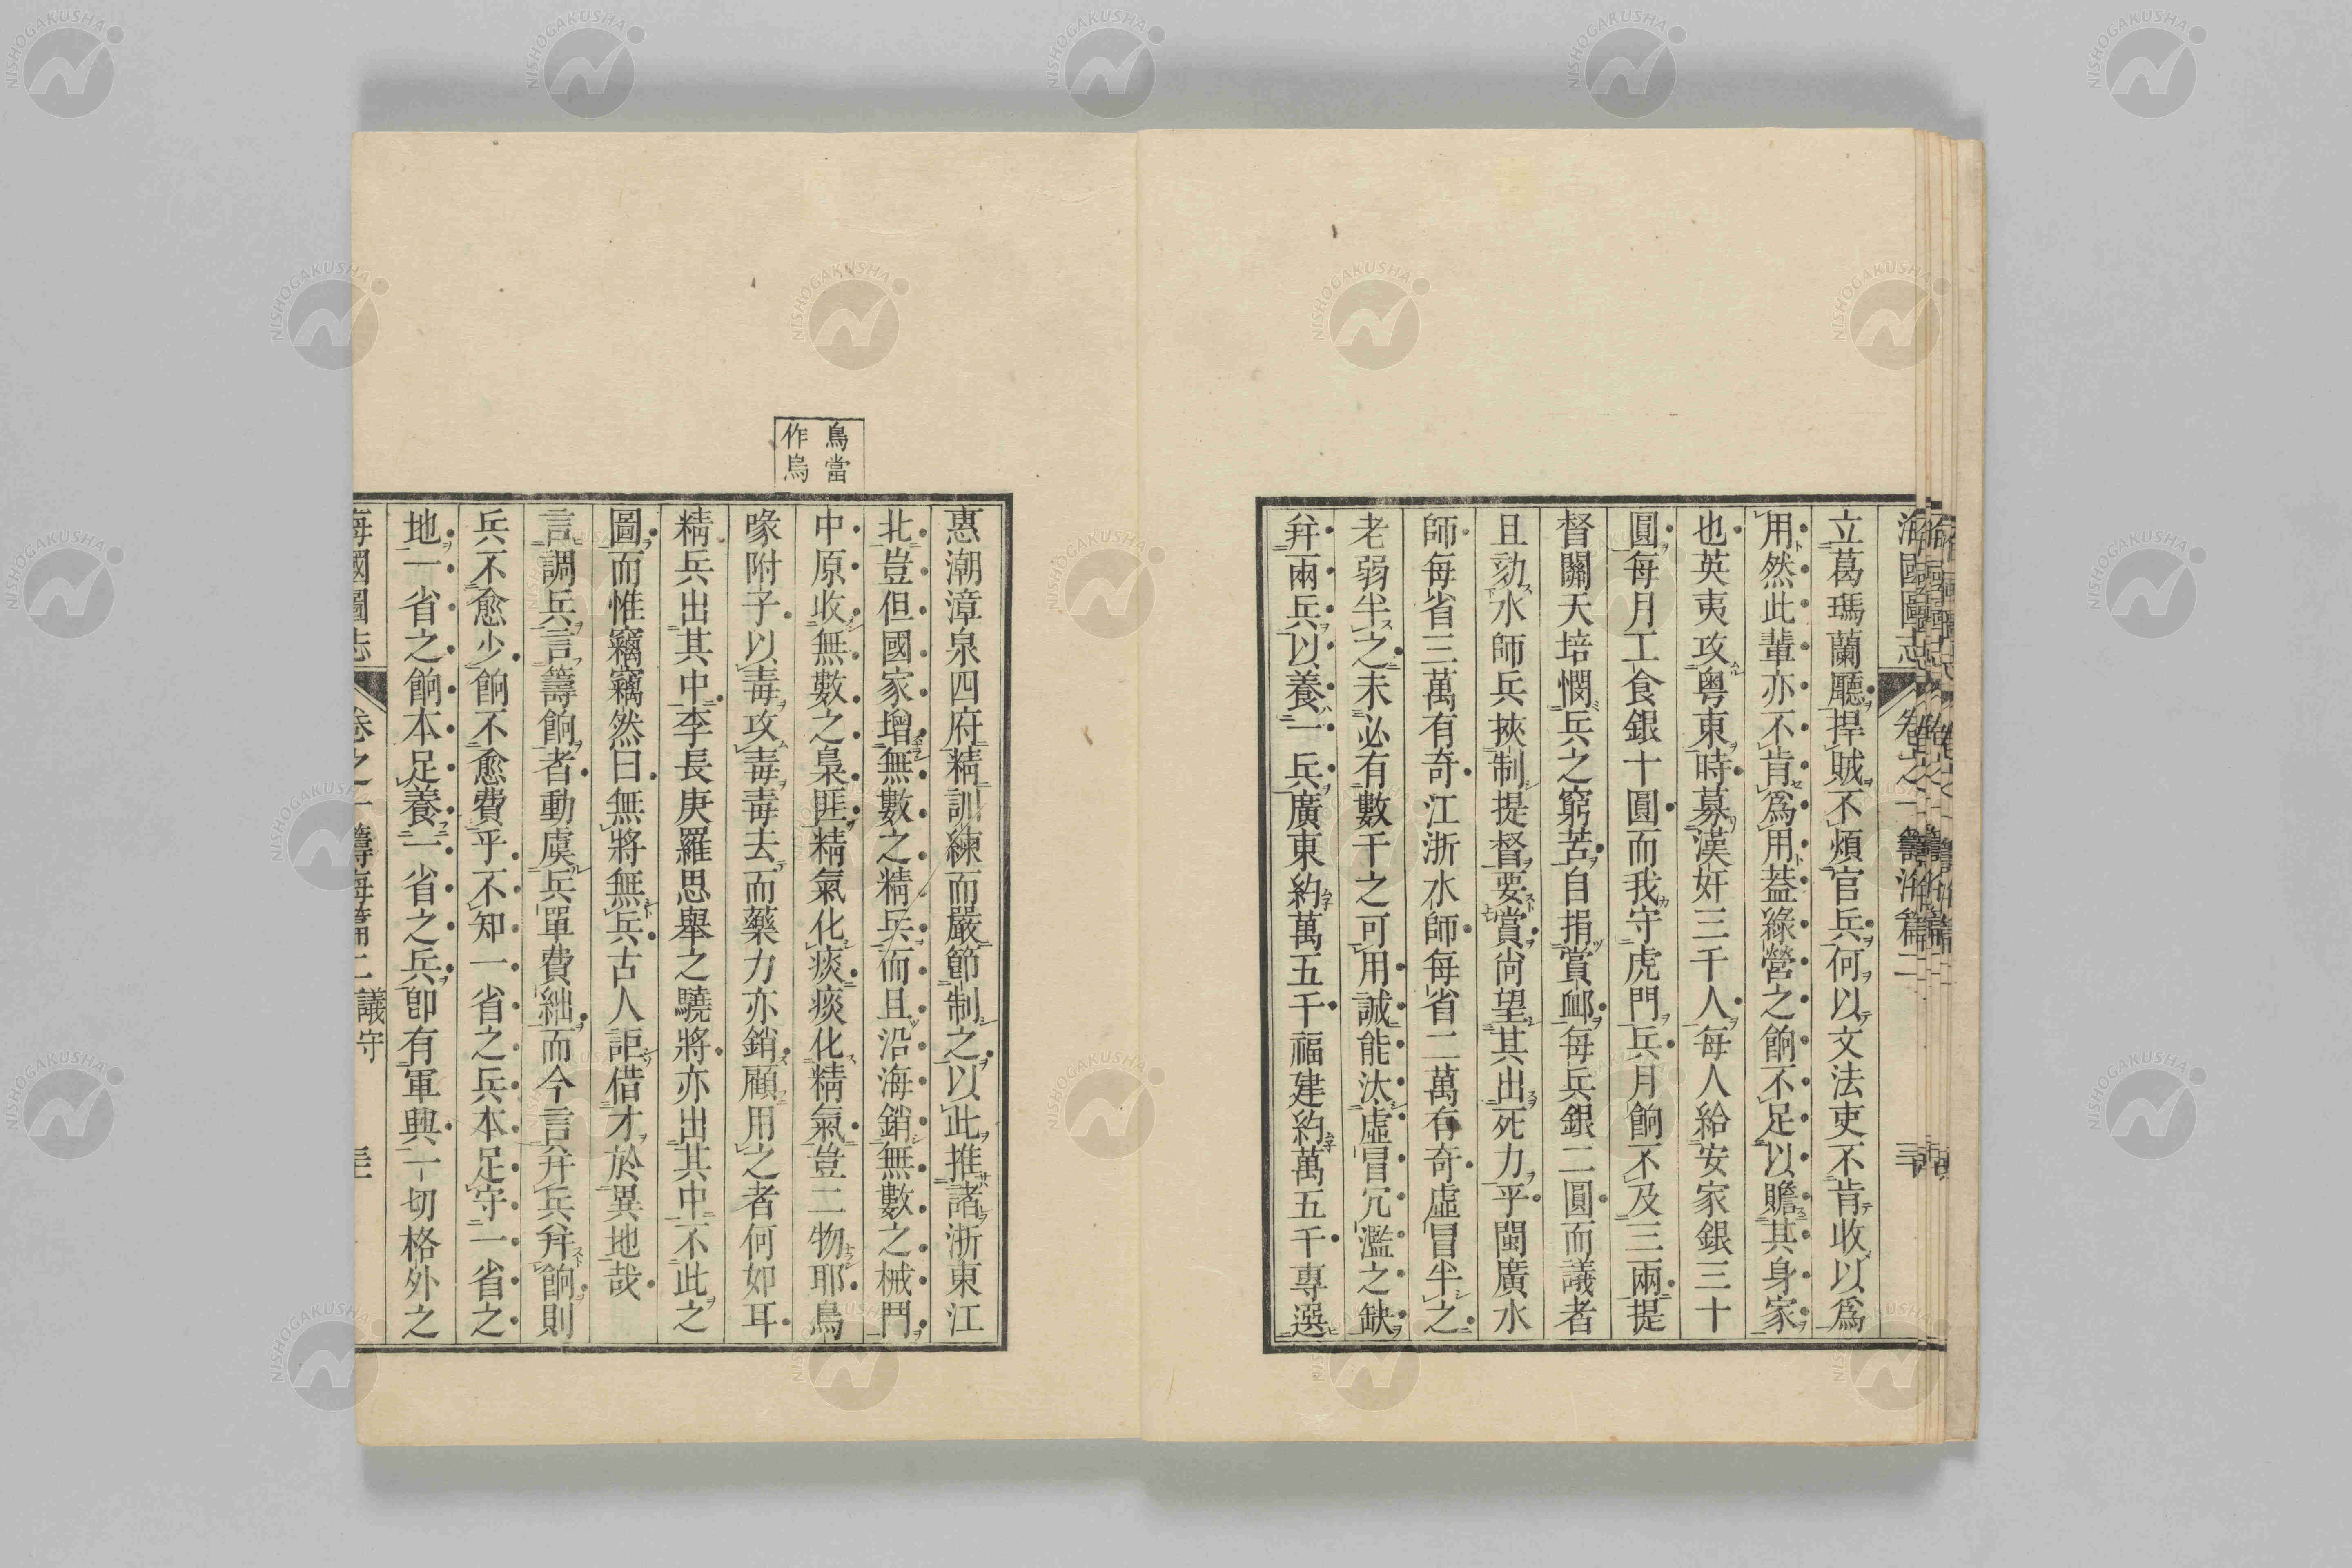 海國圖志 卷之一 籌海篇二
立葛瑪蘭廳捍賊不煩官兵何以文法吏不肯收以爲
用然此輩亦不肯爲用葢綠營之餉不足以贍其身家
也英夷攻粤東時募漢奸三千人每人給安家銀三十
圓每月工食銀十圓而我守虎門兵月餉不及三兩提
督關天培憫兵之窮苦自捐賞䘏每兵銀二圓而議者
且劾水師兵挾制提督要賞尙望其出死力乎閩廣水
師每省三萬有奇江浙水師每省二萬有奇虛冒半之
老弱半之未必有數千之可用誠能汰虛冒冗濫之缺
幷兩兵以養一兵廣東約萬五千福建約萬五千專選
鳥當
作烏
惠潮漳泉四府精訓練而嚴節制之以此推諸浙東江
北豈但國家增無數之精兵而且沿海銷無數之械鬥
中原收無數之梟匪精氣化痰痰化精氣豈二物耶鳥
喙附子以毒攻毒毒去而藥力亦銷顧用之者何如耳
精兵出其中李長庚羅思舉之驍將亦出其中不此之
圖而惟竊竊然曰無將無兵古人詎借才於異地哉
言調兵言籌餉者動虞兵單費絀而今言幷兵幷餉則
兵不愈少餉不愈費乎不知一省之兵本足守一省之
地一省之餉本足養一省之兵卽有軍興一切格外之
海國圖志 卷之一 籌海篇二 議守
NISHOGAKUSHA